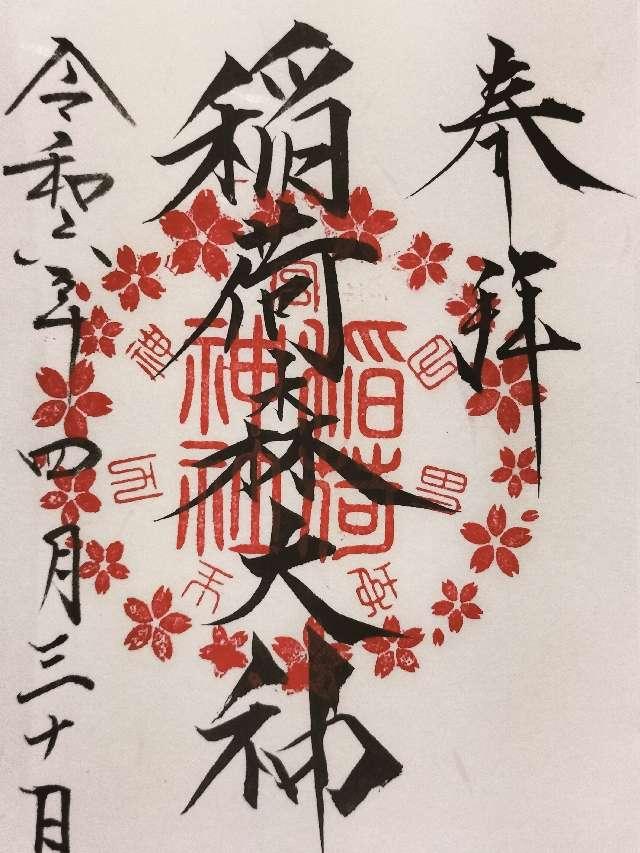 奉拝
稲荷森大神
稲荷
神社
令和六年四月三十日